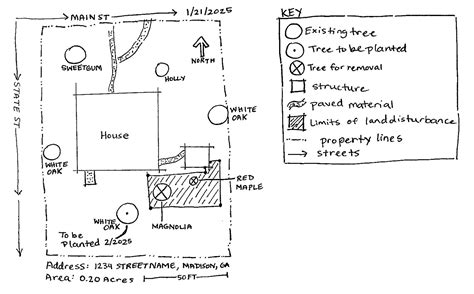 MAIN ST
1/21/2025
STATE ST.
SWEETGUM
HOLLY
NORTH
House
WHITE
OAK
WHITE
OAK
RED
MAPLE
WHITE
OAK
MAGNOLIA
To be
Planted 2/2025
Address: 1234 STREETNAME, MADISON, GA
Area: 0.20 Acres
50FT
KEY
Existing tree
Tree to be planted
Tree for removal
structure
paved material
Limits of land disturbance
property lines
streets